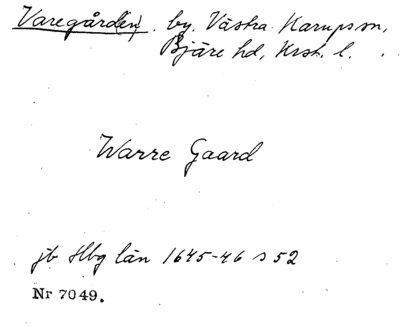 Varegård(en), by, Västra Karups sn,
Bjäre hd, Krist. l.
Warre Gaard
jb Hbg län 1645-46 s 52
Nr 7049.